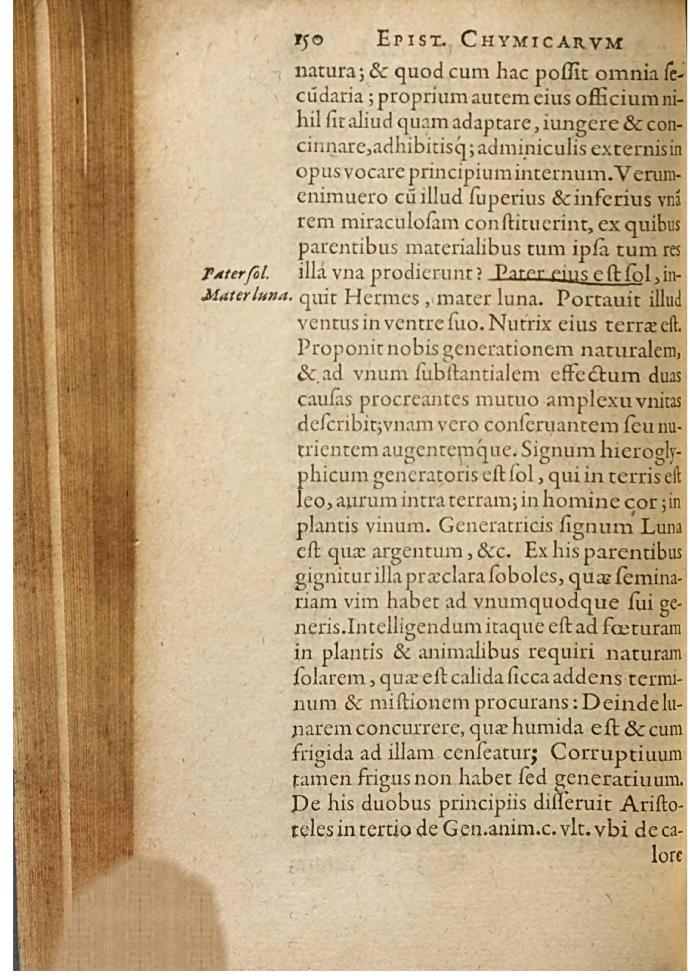 150 EPIST. CHYMICARVM
natura; & quod cum hac poſſit omnia ſe-
cūdaria; proprium autem eius officium ni-
hil ſit aliud quam adaptare, iungere & con-
cinnare, adhibitisq́; adminiculis externis in
opus vocare principium internum. Verum-
enimuero cū illud ſuperius & inferius vnā
rem miraculoſam conſtituerint, ex quibus
parentibus materialibus tum ipſa tum res
illa vna prodierunt? Pater eius eſt ſol, in-
Pater ſol.
Mater luna.
quit Hermes, mater luna. Portauit illud
ventus in ventre ſuo. Nutrix eius terræ eſt.
Proponit nobis generationem naturalem,
& ad vnum ſubſtantialem effectum duas
cauſas procreantes mutuo amplexu vnitas
deſcribit; vnam vero conſeruantem ſeu nu-
trientem augentemq́ue. Signum hierogly-
phicum generatoris eſt ſol, qui in terris eſt
leo, aurum intra terram; in homine cor; in
plantis vinum. Generatricis ſignum Luna
eſt quæ argentum, &c. Ex his parentibus
gignitur illa præclara ſoboles, quæ ſemina-
riam vim habet ad vnumquodque ſui ge-
neris. Intelligendum itaque eſt ad fœturam
in plantis & animalibus requiri naturam
ſolarem, quæ eſt calida ſicca addens termi-
num & miſtionem procurans: Deinde lu-
narem concurrere, quæ humida eſt & cum
frigida ad illam cenſeatur; Corruptiuum
tamen frigus non habet ſed generatiuum.
De his duobus principiis diſſeruit Ariſto-
teles in tertio de Gen. anim. c. vlt. vbi de ca-
lore